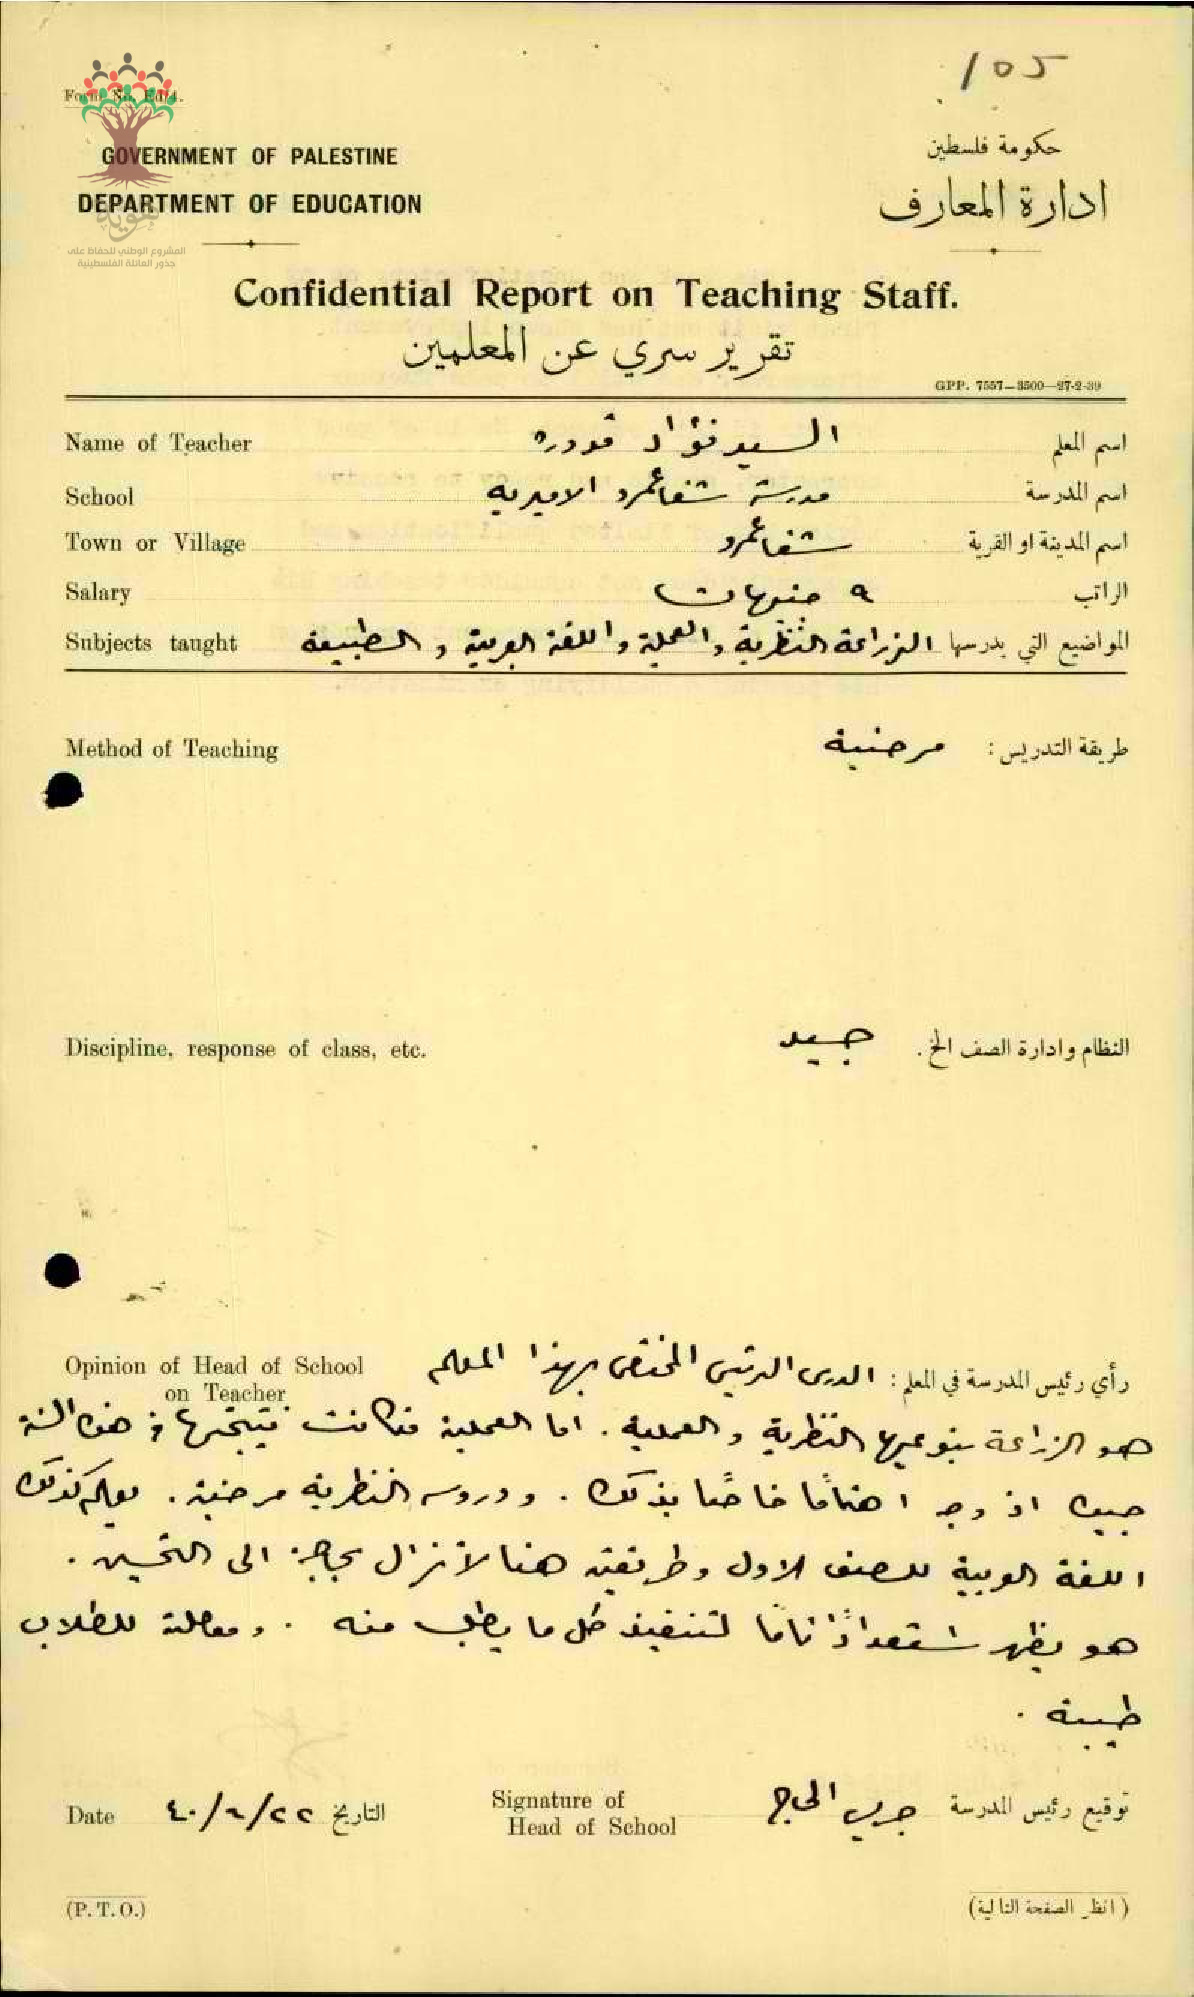 105
Form No. Ed/4.
GOVERNMENT OF PALESTINE
حكومة فلسطين
DEPARTMENT OF EDUCATION
ادارة المعارف
هوية
المشروع الوطني للحفاظ على
جذور العائلة الفلسطينية
Confidential Report on Teaching Staff.
تقرير سري عن المعلمين
GPP. 7557—3500—27-2-39
Name of Teacher السيد فؤاد قدورة اسم المعلم
School مدرسة شفاعمرو الاميرية اسم المدرسة
Town or Village شفاعمرو اسم المدينة او القرية
Salary ٩ جنيهات الراتب
Subjects taught المواضيع التي يدرسها الزراعة النظرية والعملية واللغة العربية والطبيعة
Method of Teaching طريقة التدريس : مرضية
Discipline, response of class, etc. النظام وادارة الصف الخ . جيد
Opinion of Head of School
on Teacher
رأي رئيس المدرسة في المعلم : الدرس الرئيسي المختص بهذا المعلم
هو الزراعة بنوعيها النظرية والعملية . اما العملية فكانت نتيجتها في هذه السنة
جيدة اذ وجد اهتمامًا خاصًا بذلك . ودروسه النظرية مرضية . يعلم كذلك
اللغة العربية للصف الاول وطريقته هنا لا تزال بحاجة الى التحسين .
هو يظهر استعدادًا تامًا لتنفيذ كل ما يطلب منه . ومعاملته للطلاب
طيبة .
Date ٤٠/٦/٢٢ التاريخ
Signature of
Head of School
توقيع رئيس المدرسة الحاج
(P. T. O.)
( انظر الصفحة التالية )